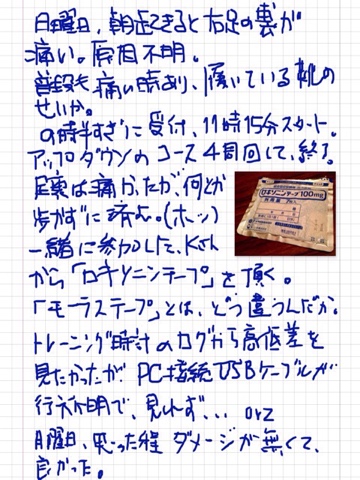 日曜日、朝起きると右足の裏が
痛い。原因不明。
普段も痛い時あり、履いている靴の
せいか。
9時半すぎに受付、11時15分スタート。
アップダウンのコース4周回して、終了。
足裏は痛かったが、何とか
歩かずに済む。(ホッ)
一緒に参加した、Kさん
から「ロキソニンテープ」を頂く。
ロキソニンテープ100mg
「モーラステープ」とは、どう違うんだか。
トレーニング時計のログから高低差を
見たかったが PC接続USBケーブルが
行方不明で、見れず... orz
月曜日、思った程 ダメージが無くて、
良かった。